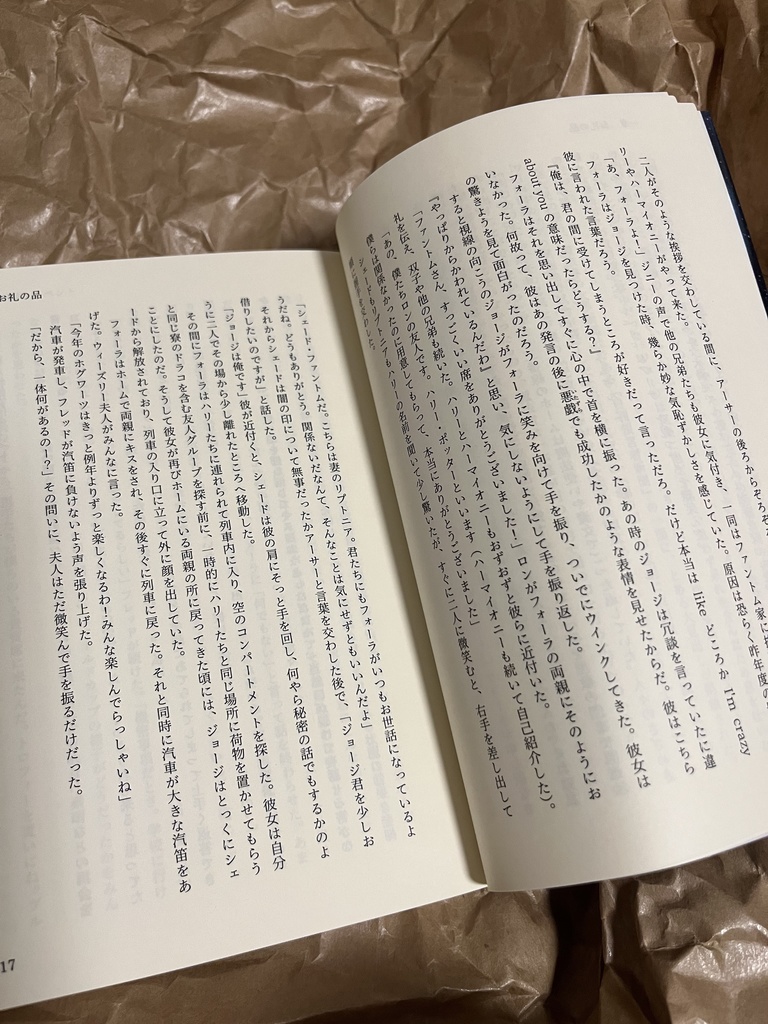 二人がそのような挨拶を交わしている間に、アーサーの後ろからぞろぞ
リーやハーマイオニーがやって来た。
「あ、フォーラよ!」ジニーの声で他の兄弟たちも彼女に気付き、一同はファントム家に
フォーラはジョージを見つけた時、幾らか妙な気恥ずかしさを感じていた。原因は恐らく昨年度の
彼に言われた言葉だろう。
『俺は、君の間に受けてしまうところが好きだって言っただろ。だけど本当は like どころか I'm crazy
about you の意味だったらどうする?』
フォーラはそれを思い出してすぐに心の中で首を横に振った。あの時のジョージは冗談を言っていたに違
いなかった。何故って、彼はあの発言の後に悪戯でも成功したかのような表情を見せたからだ。彼はこちら
の驚きようを見て面白がったのだろう。
すると視線の向こうのジョージがフォーラに笑みを向けて手を振り、ついでにウインクしてきた。彼女は
『やっぱりからかわれているんだわ』と思い、気にしないようにして手を振り返した。
「ファントムさん、すっごくいい席をありがとうございました!」ロンがフォーラの両親にそのようにお
礼を伝え、双子や他の兄弟も続いた。ハリーとハーマイオニーもおずおずと彼らに近付いた。
「あの、僕たちロンの友人です。ハリー・ポッターといいます(ハーマイオニーも続いて自己紹介した)。
僕らは関係なかったのに用意してもらって、本当にありがとうございました」
シェードもリプトニアもハリーの名前を聞いて少し驚いたが、すぐに二人に微笑むと、右手を差し出して
お礼の品
「シェード・ファントムだ。こちらは妻のリプトニア。君たちにもフォーラがいつもお世話になっているよ
うだね。どうもありがとう。関係ないだなんて、そんなことは気にせずともいいんだよ」
それからシェードは闇の印について無事だったかアーサーと言葉を交わした後で、「ジョージ君を少しお
借りしたいのですが」と話した。
「ジョージは俺です」彼が近付くと、シェードは彼の肩にそっと手を回し、何やら秘密の話でもするかのよ
うに二人でその場から少し離れたところへ移動した。
その間にフォーラはハリーたちに連れられて列車内に入り、空のコンパートメントを探した。彼女は自分
と同じ寮のドラコを含む友人グループを探す前に、一時的にハリーたちと同じ場所に荷物を置かせてもらう
ことにしたのだ。そうして彼女が再びホームにいる両親の所に戻ってきた頃には、ジョージはとっくにシェ
ードから解放されており、列車の入り口に立って外に顔を出していた。
フォーラはホームで両親にキスをされ、その後すぐに列車に戻った。それと同時に汽車が大きな汽笛をあ
げた。ウィーズリー夫人がみんなに言った。
「今年のホグワーツはきっと例年よりずっと楽しくなるわ!みんな楽しんでらっしゃいね」
汽車が発車し、フレッドが汽笛に負けないよう声を張り上げた。
「だから、一体何があるのー?」その問いに、夫人はただ微笑んで手を振るだけだった。
17